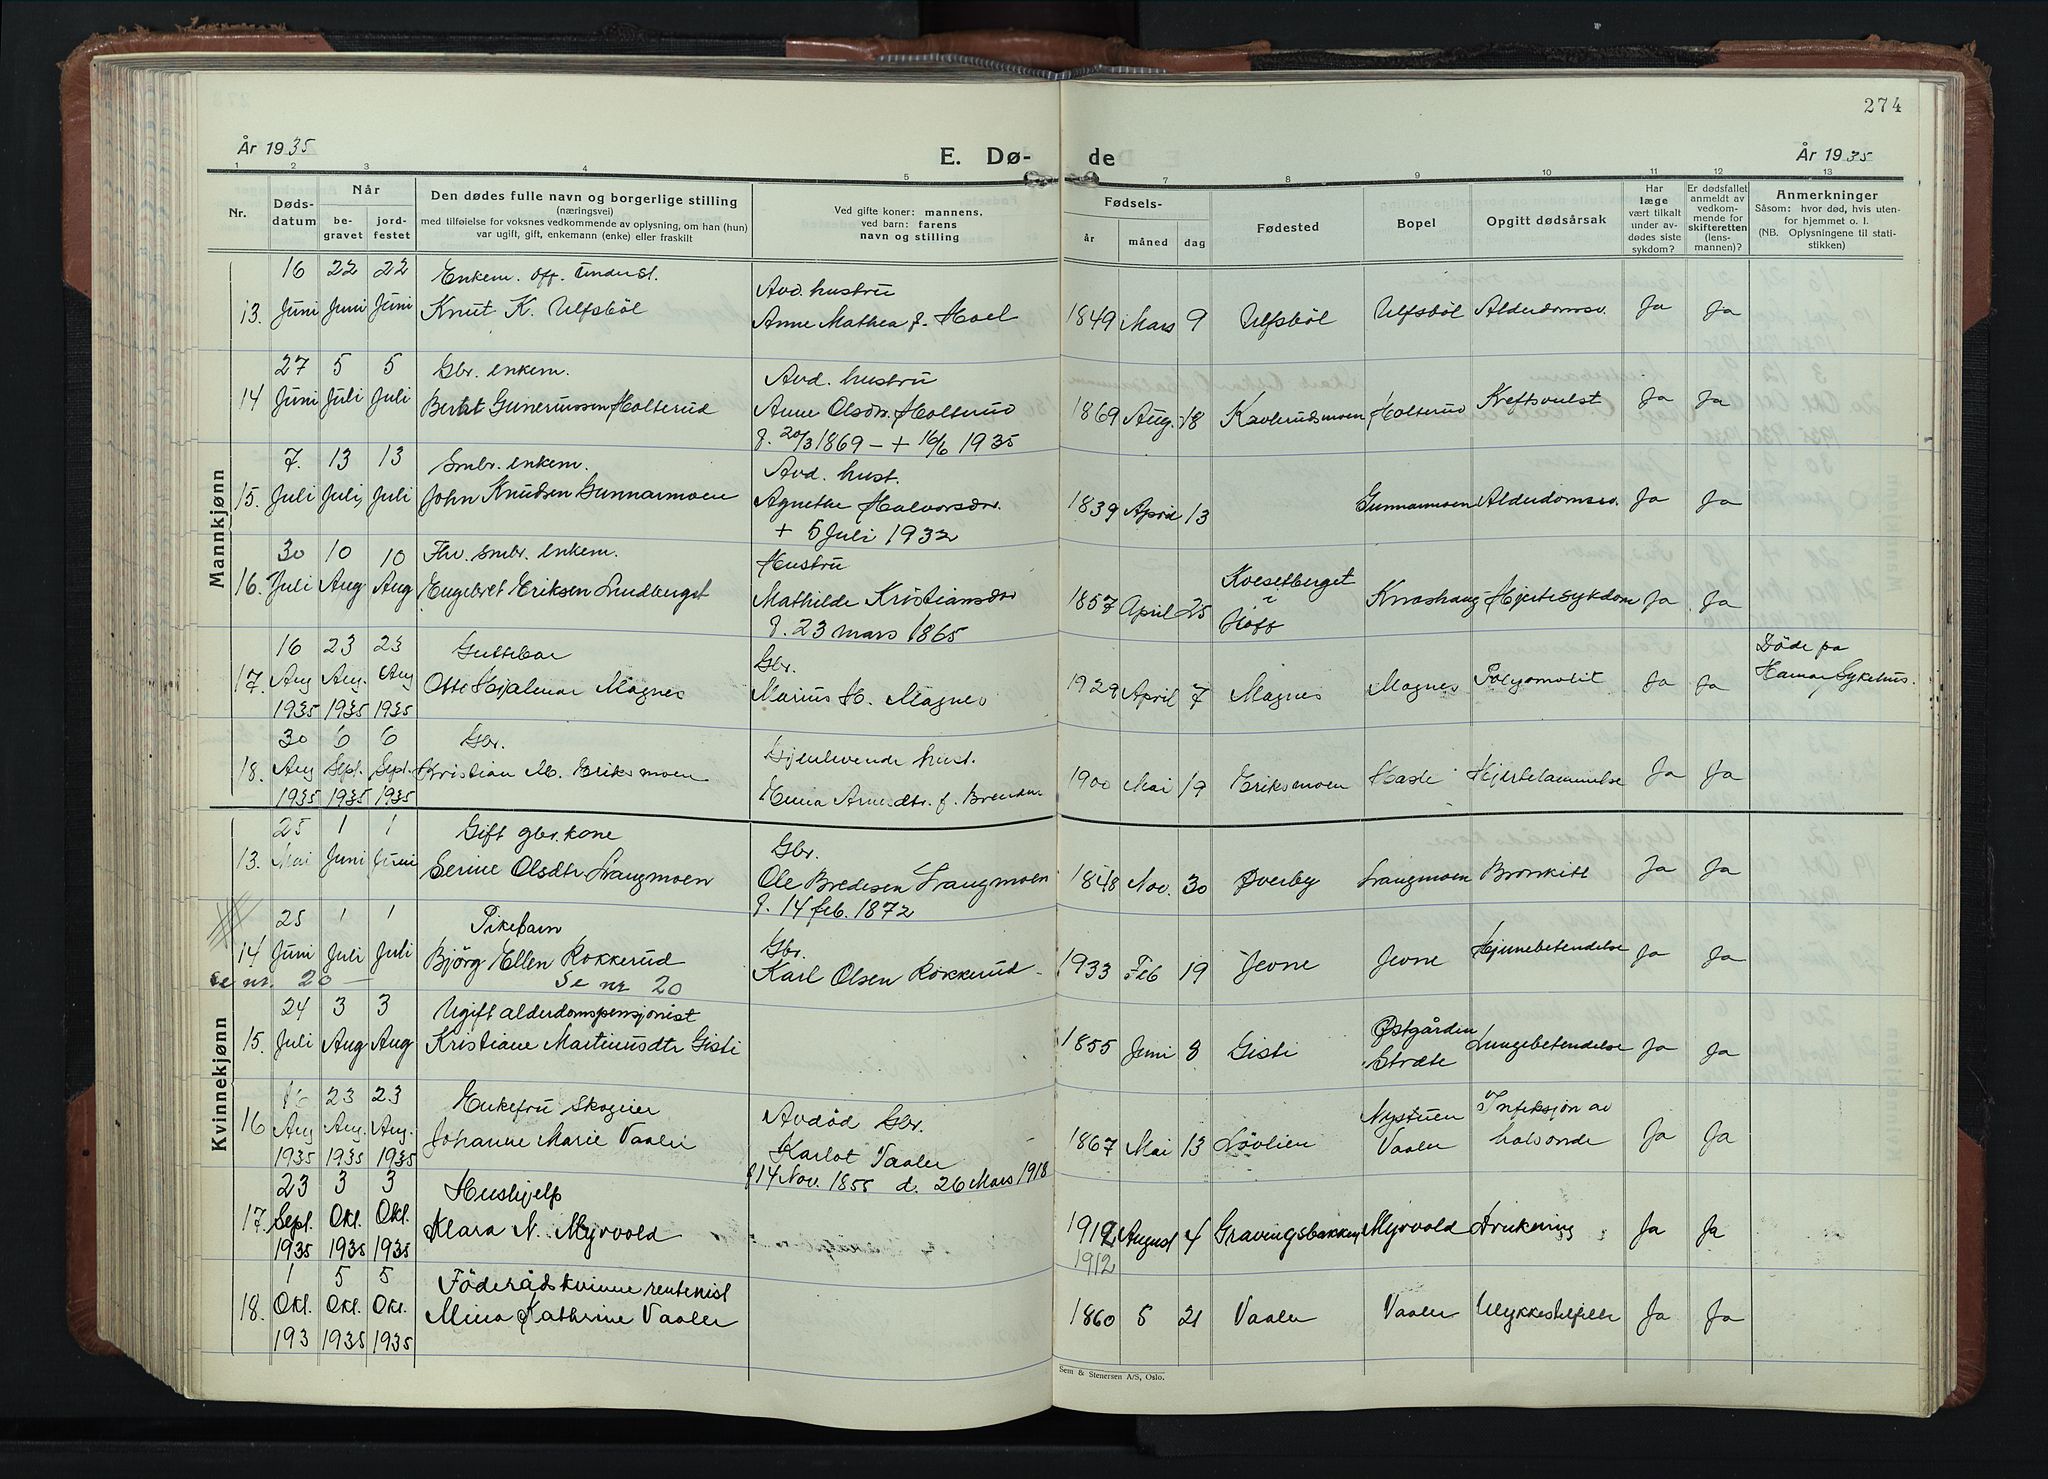 274
År 1935
E. Dø-
de
År 1935
1 2 3 4 5 7 8 9 10 11 12 13
Nr.
Døds-
datum
Når
be-
gravet
jord-
festet
Den dødes fulle navn og borgerlige stilling
(næringsvei)
med tilføielse for voksnes vedkommende av oplysning, om han (hun)
var ugift, gift, enkemann (enke) eller fraskilt
Ved gifte koner: mannens,
ved barn: farens
navn og stilling
Fødsels-
år måned dag
Fødested
Bopel
Opgitt dødsårsak
Har
læge
vært tilkalt
under av-
dødes siste
sykdom?
Er dødsfallet
anmeldt av
vedkom-
mende for
skifteretten
(lens-
mannen)?
Anmerkninger
Såsom: hvor død, hvis uten-
for hjemmet o. l.
(NB. Oplysningene til stati-
stikken)
Mannkjønn
16 22 22 Enkem. off. underst. Avd. hustru
13. Juni Juni Juni Knut K. Ulfsböl Anne Mathea f. Hoel 1849 Mars 9 Ulfsböl Ulfsböl Alderdomssv. Ja Ja
27 5 5 Gbr. enkem. Avd. hustru
14 Juni Juli Juli Berht Gunerussen Holterud Anne Olsdtr. Holterud 1869 Aug. 18 Kavlerudsmoen Holterud Kreftsvulst Ja Ja
f. 20/3 1869 – + 16/6 1935
7. 13 13 Smbr. enkem. Avd. hust.
15. Juli Juli, Juli John Knudsen Gunnarmoen Agnethe Halvorsdtr. 1839 April 13 Gunnarmoen Alderdomssv. Ja Ja
+ 5 Juli 1932
30 10 10 Fhv. smbr. enkem. Hustru
16. Juli Aug Aug Engebret Eriksen Lundberget Mathilde Kristiansdtr 1857 April 25 Kvesetberget i Hoff Knashaug Hjertesykdom Ja Ja
f. 23 mars 1865
16 23 23 Guttebar Gbr.
17. Aug Aug. Aug Otto Hjalmar Magnes Marius H. Magnes 1929 April 7 Magnes Magnes Ja Ja Döde på Hamar Sykehus.
1935 1935 1935
30 6 6 Gbr. Gjenlevende hust.
18. Aug Sept. Sept. Kristian M. Eriksmoen Emma f. Brenden 1900 Mai 19 Eriksmoen Hasle Hjertelammelse Ja Ja
1935 1935 1935
Kvinnekjønn
25 1 1 Gift gbr. kone Gbr.
13. Mai Juni Juni Serine Olsdtr Langmoen Ole Bredesen Langmoen 1848 Nov. 30 Överby Langmoen Bronkitt Ja Ja
f. 14 feb. 1872
25 1 1 Pikebarn Gbr.
14 Juni Juli Juli Bjørg Ellen Rokkerud Karl Olsen Rokkerud 1933 Feb 19 Jevne Jevne Hjernebetendelse Ja Ja
Se nr. 20 — Se nr 20
24 3 3 Ugift alderdomspensjonist
15. Juli Aug Aug Kristiane Martinusdtr Gisti 1855 Juni 8 Gisti Østgården Stræte Lungebetendelse Ja Ja
16 23 23 Enkefru Skogeier Avdød Gbr.
16 Aug Aug. Aug. Johanne Marie Vaaler Karlot Vaaler 1867 Mai 13 Løvlien Nystuen Vaaler Infeksjon av halsonde Ja Ja
1935 1935 1935 f 14 Nov. 1855 d. 26 Mars 1918
23 3 3 Hushjelp
17. Sept. Okt. Okt. Klara N. Myrvold 1912 August 4 Gravingsbakken Myrvold Drukning Ja Ja
1935 1935 1935 1912
1 5 5 Föderådskvinne rentenist
18. Okt. Okt. Okt. Mina Kathrine Vaaler 1860 5 21 Vaaler Vaaler Ulykkestilfelle Ja Ja
193 1935 1935
Sem & Stenersen A/S, Oslo.